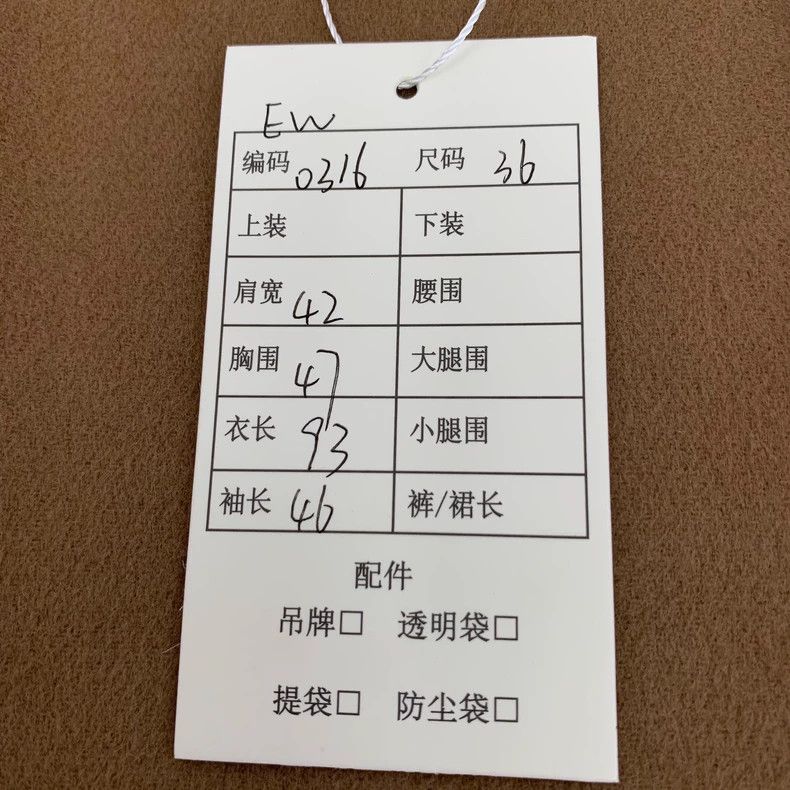 EW
编码 0316 尺码 36
上装 下装
肩宽 42 腰围
胸围 47 大腿围
衣长 93 小腿围
袖长 46 裤/裙长
配件
吊牌□ 透明袋□
提袋□ 防尘袋□